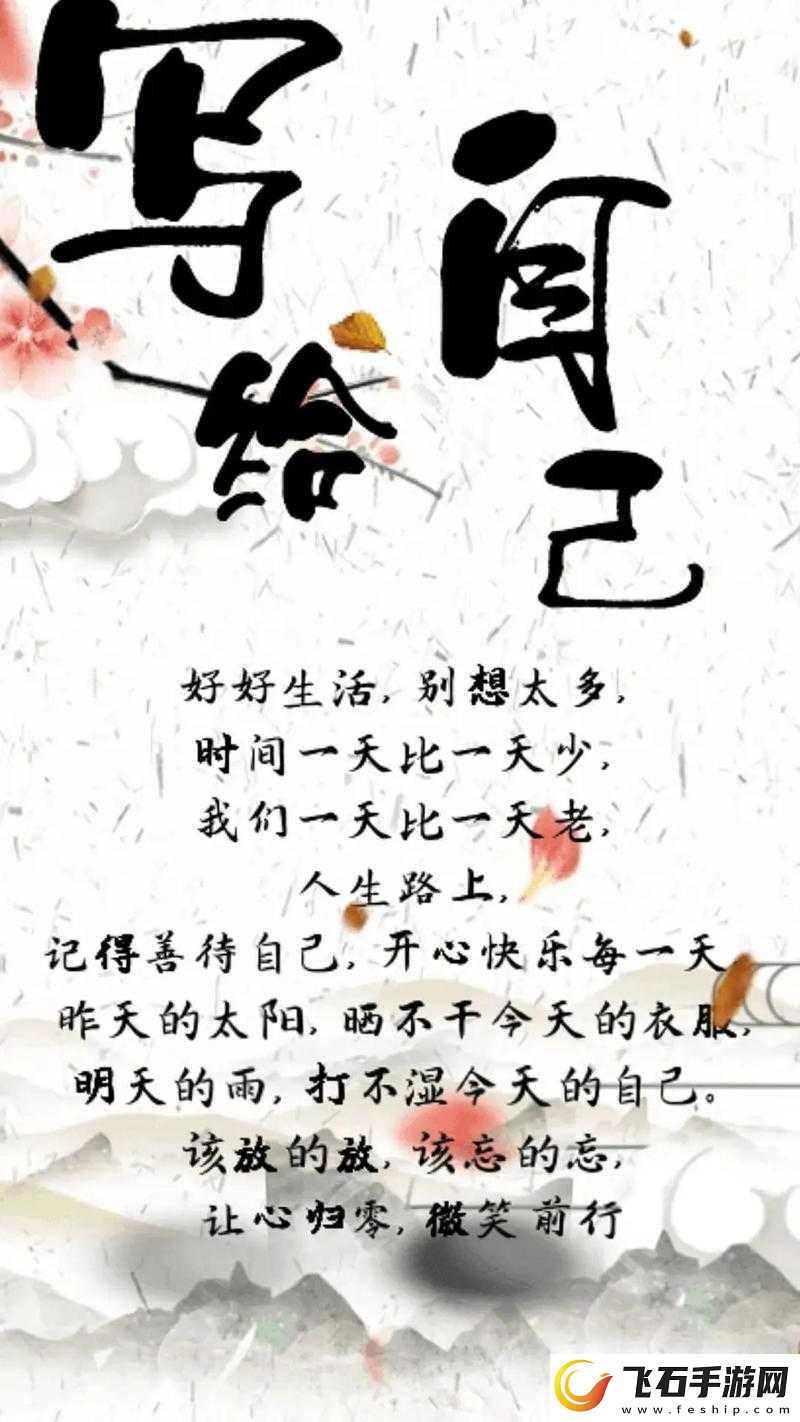 写给
自己
好好生活,别想太多,
时间一天比一天少,
我们一天比一天老,
人生路上,
记得善待自己,开心快乐每一天
昨天的太阳,晒不干今天的衣服,
明天的雨,打不湿今天的自己。
该放的放,该忘的忘,
让心归零,微笑前行
飞石手游网
www.feship.com